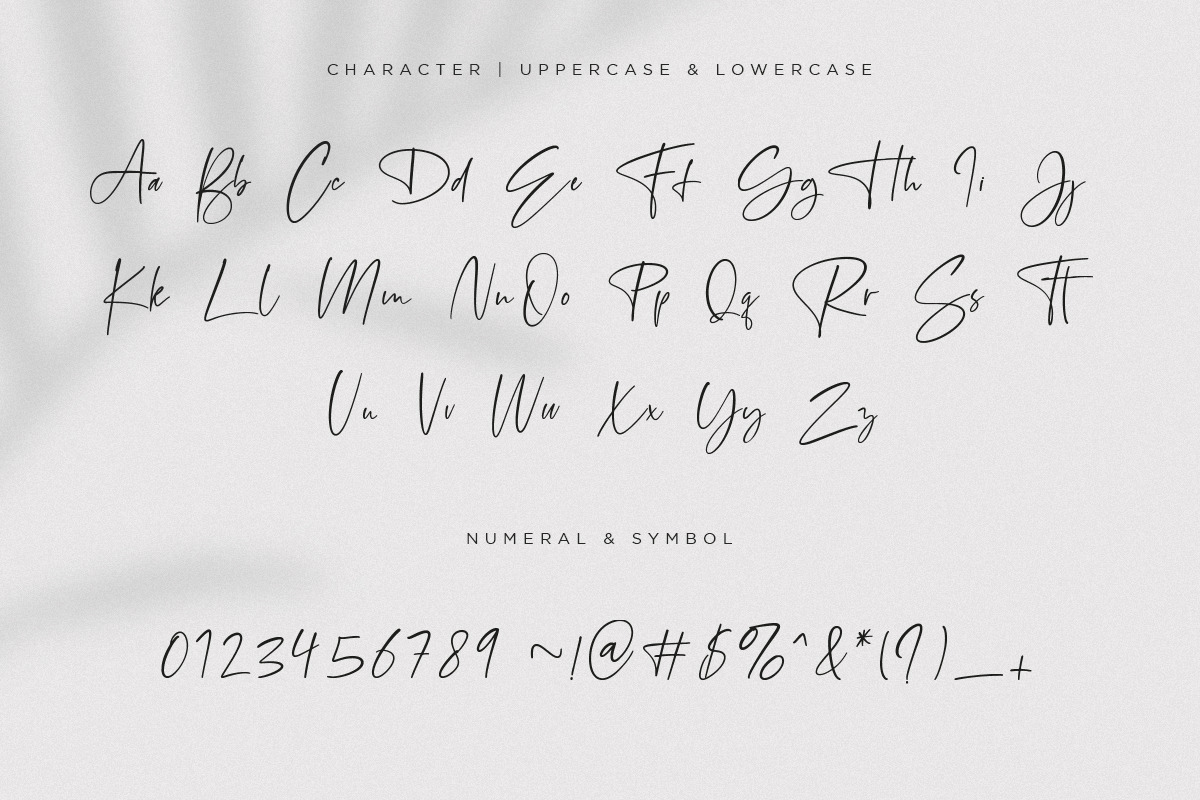 CHARACTER | UPPERCASE & LOWERCASE
Aa Bb Cc Dd Ee Ff Gg Hh Ii Jj
Kk Ll Mm Nn Oo Pp Qq Rr Ss Tt
Uu Vv Ww Xx Yy Zz
NUMERAL & SYMBOL
0123456789 ~!@#$%^&*(?)_+